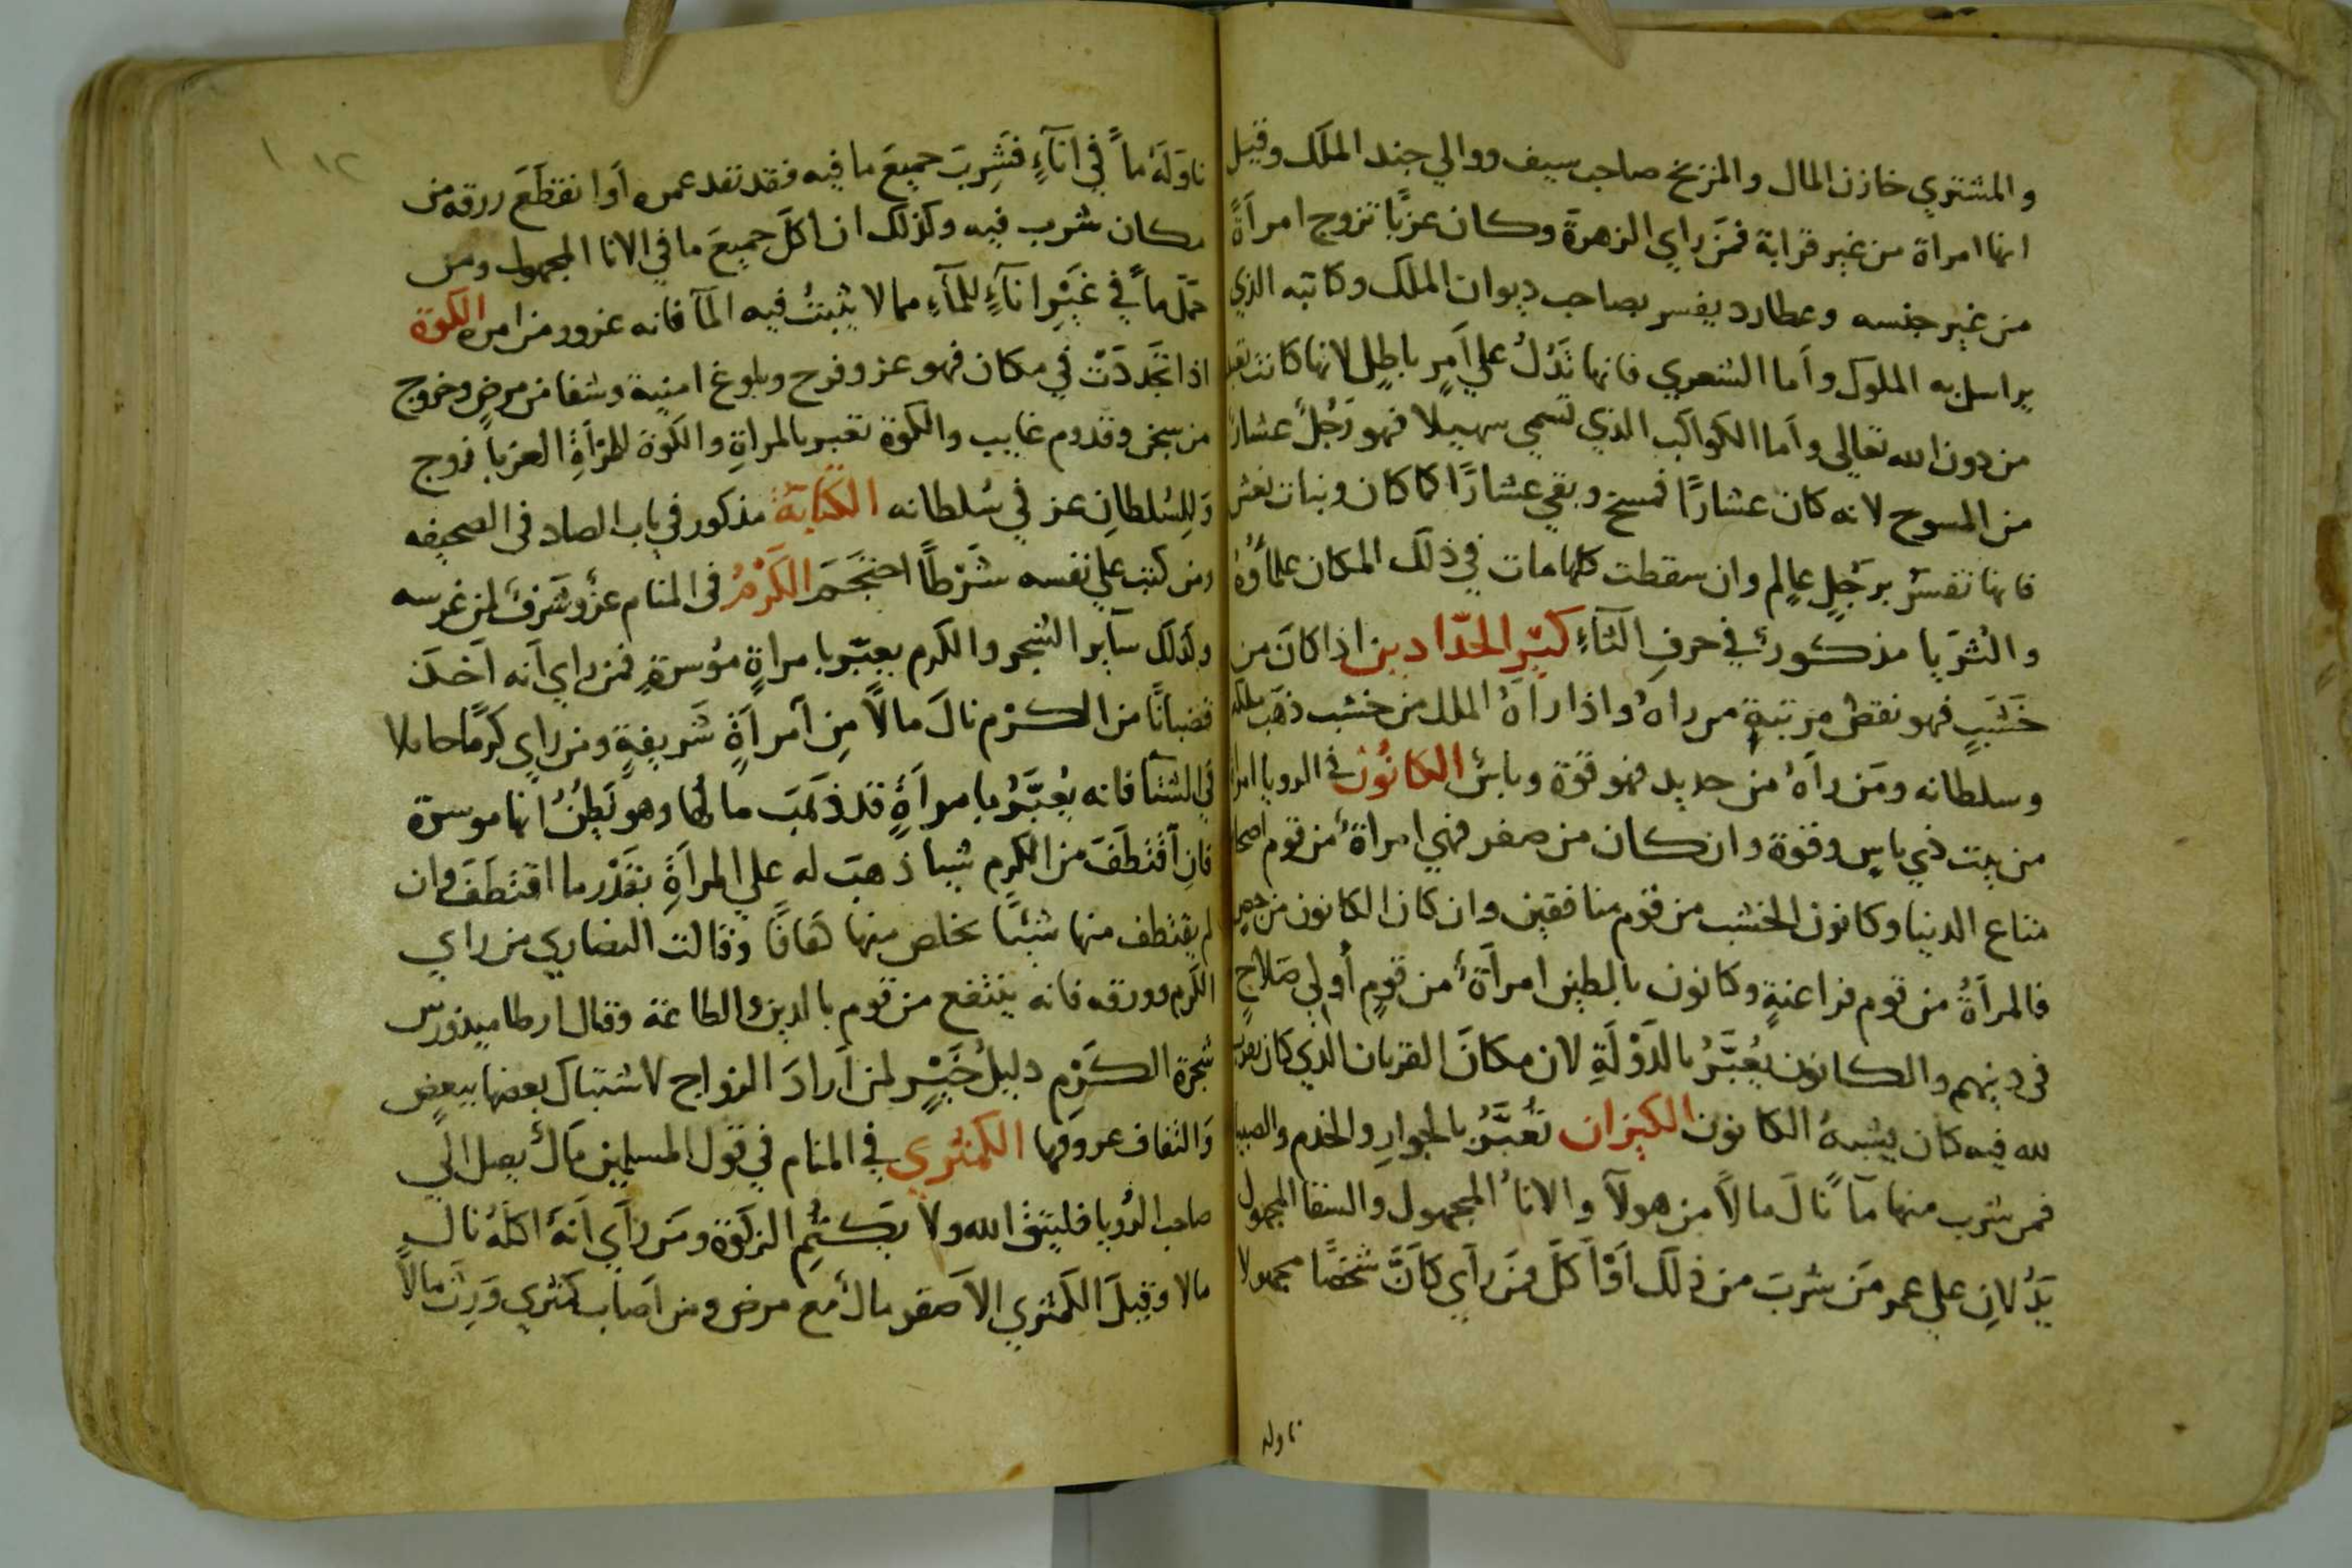 والمشتري خازن المال والمزيخ صاحب سيف ووالي جند الملك وقيل
انها امراة من غير قرابة فمن راي الزهرة وكان عزبًا تزوج امرأةً
من غير جنسه وعطارد يفسر بصاحب ديوان الملك وكاتبه الذي
يراسل به الملوك وأما الشعري فانها تَدُلُ علي أمرٍ باطلٍ لانها كانت تعبد
من دون الله تعالى وأما الكواكب الذي تسمي سهيلا فهو رَجُلٌ عشارٌ
من المسوح لانه كان عشارًا فمسخ وبقي عشارًا كما كان وبنات نعش
فانها تفسرُ برَجُلٍ عالمٍ وان سقطت كلها مات في ذلك المكان علماؤهُ
والثُريا مذكورةٌ في حرفِ الثاءِ كيّر الحدّادين اذا كان من
خَشَبٍ فهو نقص مرتبةٍ من راهُ واذا راهُ الملك من خشب ذهَب ملكه
وسلطانه ومَن راَهُ من حديد فهو قوة وباسٌ الكانُون في الرويا امراة
من بيت ذي باسٍ وقوة وان كان من صفر فهي امراةٌ من قوم اصحاب
متاع الدنيا وكانون الخشب من قوم منافقين وان كان الكانون من جص
فالمرأةُ من قوم فراعنةٍ وكانون بالطين امرأةٌ من قومٍ أُولي صَلاحٍ
في دينهم والكانون يُعَبَّرُ بالدَوْلَةِ لان مكانَ القربان الذي كان يقرب
لله فيه كان يشبهُ الكانون الكيزان تُعَبَّرُ بالجوارِ والخدم والصبيان
فمن شرب منها مآءً نالَ مالاً من هولآ والاناءُ المجهول والسقا المجهول
يَدُلانِ علي عمر مَن شربَ من ذلك أوْ أكلَ فمَن رأي كأنَّ شخصًا مجهولا
ناوله
ناوَلَهُ مآءً في اناءٍ فَشَرِبَ جميعَ ما فيه فقد نفد عمره أو انقطَعَ رزقه من
مكان شرب فيه وكذلك ان أكلَ جميعَ ما في الانا المجهول ومن
حمَل مآءً في غَيْرِ انآءٍ للمآءِ مما لا يثبتُ فيه المآ فانه غرور من امره الكوة
اذا تجَدَدَتْ في مكان فهو عز وفرح وبلوغ امنية وشفا من مرضٍ وخروج
من سجن وقدوم غايب والكوة تعبر بالمراةِ والكوة للمرأةِ العزبا زوج
وَلِلسُلطانِ عز في سُلطانه الكتابَة مذكور في باب الصاد في الصحيفه
ومن كتب علي نفسه شَرْطاً احتَجَمَ الكَرْمُ في المنام عزٌ وشرفٌ لمن غرسه
وكذلك سآير الشجر والكرم يعبّر بامراةٍ مؤسرةٍ فمن راي أنه أخَذَ
قضبانًا من الكرْم نالَ مالاً مِن امرأةٍ شَريفةٍ ومن راي كرمًا حاملا
في الشتا فانه يُعبَّرُ بامرأةٍ قد ذهَبَ مالُها وهو يَظنُ انها موسرة
فان اقتطَفَ من الكرم شيا ذهبَ له علي المرأةِ بقَدْر ما اقتطَفَ وان
لم يقتطف منها شيئًا تخلص منها كفافًا وقالت النصاري من راي
الكَرْم وورقه فانه ينتفع من قوم بالدين والطاعة وقال ارطاميدورس
شجرة الكَرْمِ دليلُ خَيْرٍ لمن أرادَ الزواج لاشتباك بعضها ببعض
وَالتفاف عروقها الكمثري في المنام في قول المسلمين مَالٌ يصل الي
صاحب الرُويا فليتقِ الله ولا يَكتُم الزكوة ومَن رَأي أنهُ اكلَهُ نال
مالا وَقيلَ الكمثري الأصفر مالٌ مع مرض ومن أصاب كمثري وَرِثَ مالاً